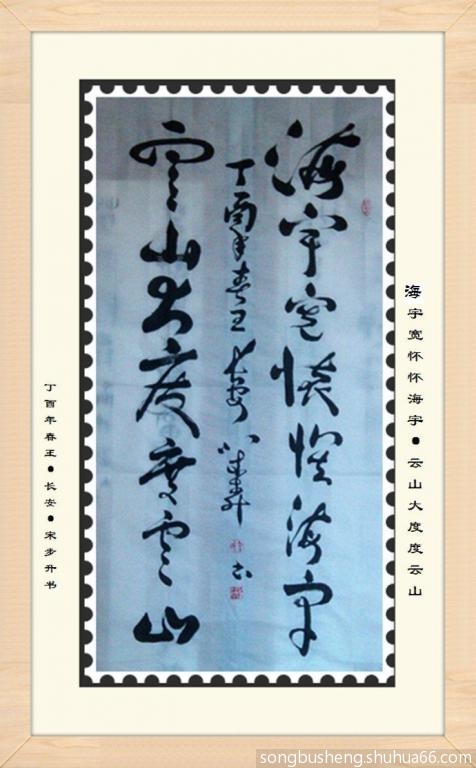 海宇宽怀怀海宇
丁酉年春王 长安 宋步升书
云山大度度云山
海宇宽怀怀海宇●云山大度度云山
丁酉年春王●长安●宋步升书
songbusheng.shuhua66.com